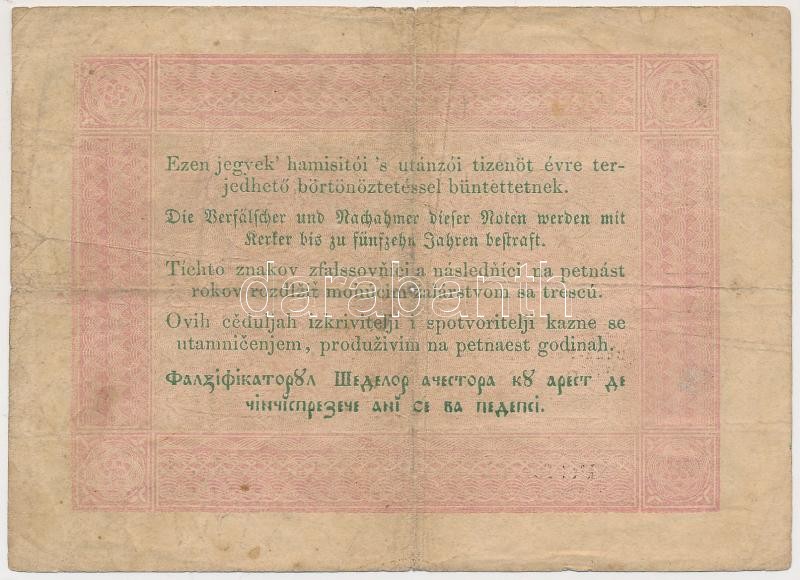 Ezen jegyek' hamisitói 's utánzói tizenöt évre ter-
jedhető börtönöztetéssel büntettetnek.
Die Verfälscher und Nachahmer dieser Noten werden mit
Kerker bis zu fünfzehn Jahren bestraft.
Tíchto znakov zfalssovňíci a následňíci na petnást
rokov rozólžiť monúcim žalárstvom sa trescú.
Ovih cěduljah izkrivitelji i spotvoritelji kazne se
utamničenjem, produživim na petnaest godinah.
Фалзіфікаторꙋл Шеделор ачестора кꙋ арест де
чінчіспрезече ані се ва педепсі.
darabanth